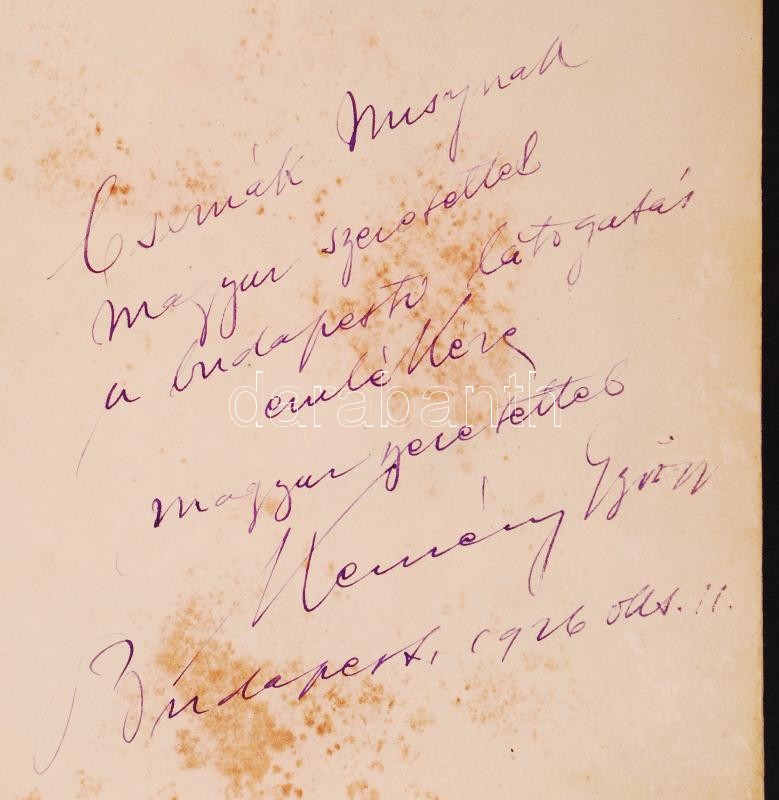 Csermák Muszynak
magyar szeretettel
a budapesti látogatás
emlékére
magyar szeretettel
Kemény György
Budapest, 1926 okt. 11.
darabanth